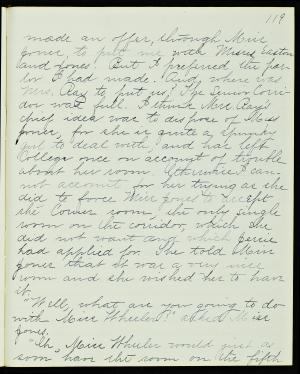 119
made an offer, through Miss
Jones, to put me with Misses Easton
and Jones. But I preferred the par-
lor I had made. And where was
Mrs. Ray to put us? The Senior Corri-
dor was full. I think Mrs. Ray's
chief idea was to dispose of Miss
Jones, for she is quite a spunky
girl to deal with, and has left
College once on account of trouble
about her room. Otherwise I can-
not account for her trying as she
did to force Miss Jones to accept
the Corner room, the only single
room on the corridor, which she
did not want and which
had applied for. She told Miss
Jones that it was a very nice
room and she wished her to have
it.
"Well, what are you going to do
with Miss Wheeler?" asked Miss
Jones.
"Oh, Miss Wheeler would just as
soon have the room on the fifth